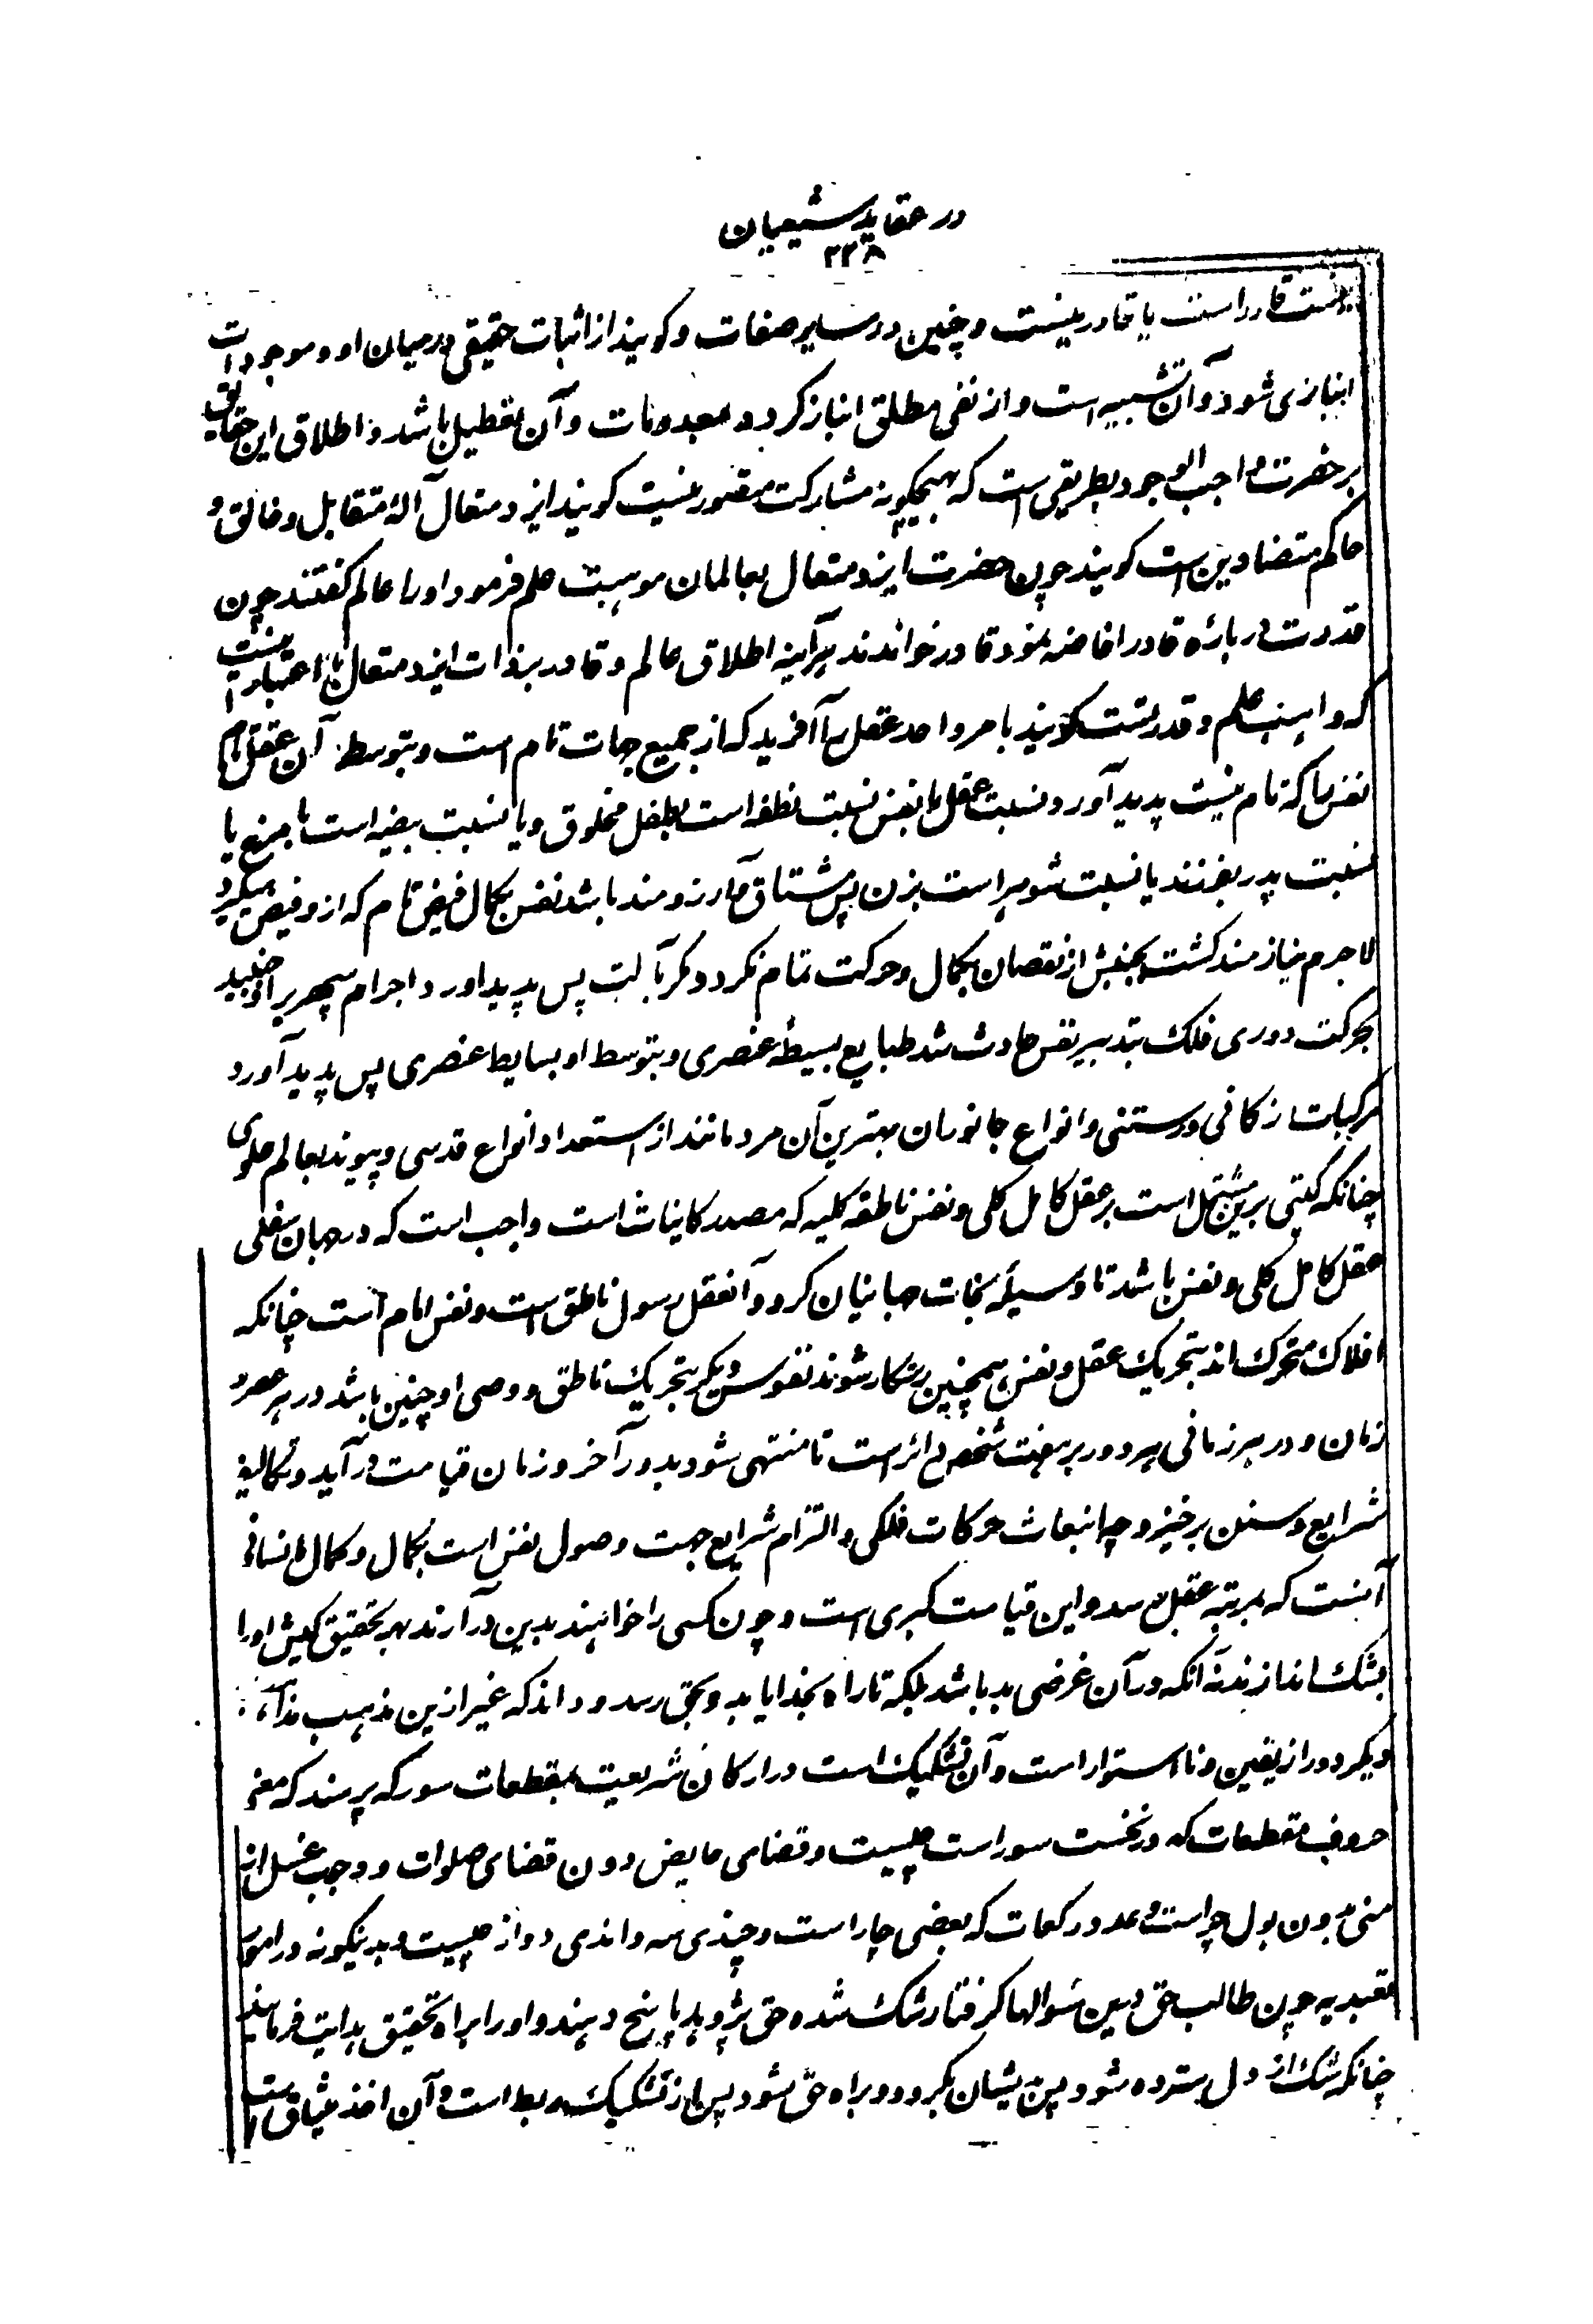 در عقاید شیعیان
۲۳۸
نیست قادر است یا قادر نیست و چنین در سایر صفات و کویند از اثبات حقیقی در میان او و موجودات
انبازی شود و آن تشبیه است و از نفی مطلق انباز کردد معدومات و آن تعطیل باشد و اطلاق این حقایق
بر حضرت واجب الوجود بطریقی است که هیچکونه مشارکت متصور نیست کویند ایزد متعال آله متقابل و خالق و
حاکم متضادین است کویند چون حضرت ایزد متعال بعالمان موهبت علم فرمود اورا عالم کفتند چون
قدرت در باره قادر افاضه نمود قادر خواندند هرآینه اطلاق عالم و قادر بذات ایزد متعال باین اعتبار است
که واهب علم و قدرتست کویند بامر واحد عقل را آفرید که از جمیع جهات تام است و بتوسط آن عقل تام
نفس را که تام نیست پدید آورد و نسبت عقل با نفس نسبت نطفه است بطفل مخلوق و یا نسبت بیضه است با مرغ یا
نسبت پدر بفرزند یا نسبت شوهر است بزن پس مشتاق و آرزومند باشد نفس بکمال فیض تام که از و فیض میکیرد
لاجرم نیازمند کشت بجنبش از نقصان بکمال و حرکت تمام نکردد مکر بآلت پس پدید اورد اجرام سپهر بر او جنبید
بحرکت دوری فلک بتدبیر نفس حادث شد طبایع بسیطه عنصری و بتوسط او بسایط عنصری پس پدید آورد
مرکبات از کانی و رستنی و انواع جانوران بهترین آن مردمانند از استعداد انواع قدسی و پیوند بعالم علوی
چنانکه کیتی برین مشتمل است بر عقل کامل کلی و نفس ناطقه کلیه که مصدر کاینات است واجب است که در جهان سفلی
عقل کامل کلی و نفس باشد تا وسیله نجات جهانیان کردد و آنعقل رسول ناطق است و نفس امام است چنانکه
افلاک متحرک اند بتحریک عقل و نفس همچنین رستکار شوند نفوس دیکر بتحریک ناطق و وصی او چنین باشد در هر عصر و
زمان و در هر زمانی هر دور بر هفت شخص دائر است تا منتهی شود بدور آخر و زمان قیامت در آید و تکالیف
شرایع و سنن برخیزد چه انبعاث حرکات فلکی و التزام شرایع جهت وصول نفس است بکمال و کمال انسانی
آنست که بمرتبه عقل رسد و این قیامت کبری است و چون کسی را خواهند بدین در آرند بهر تحقیق کیش اورا
بشک اندازند نه آنکه در آن غرضی بد باشد بلکه تا راه بخدا یابد و بحق رسد و داند که غیر ازین مذهب مذاهب
دیکر دور از یقین و نا استوار است و آن تشکیک است در ارکان شریعت بمقطعات سور که پرسند که معنی
حروف مقطعات که در نخست سور است چیست و قضای حایض دون قضای صلوات و وجوب غسل از
منی بدون بول چراست و عدد رکعات که بعضی چار است و چندی سه و اندی دو از چیست و بدینکونه در امور
تعبدیه چون طالب حق بدین سوالها کرفتار شک شده حق پژوهد پاسخ دهند و اورا براه تحقیق هدایت فرمایند
چنانکه شک از دل سترده شود پس پیشان بکرود و براه حق شود پس از تشکیک ربط است و آن اخذ میثاق است